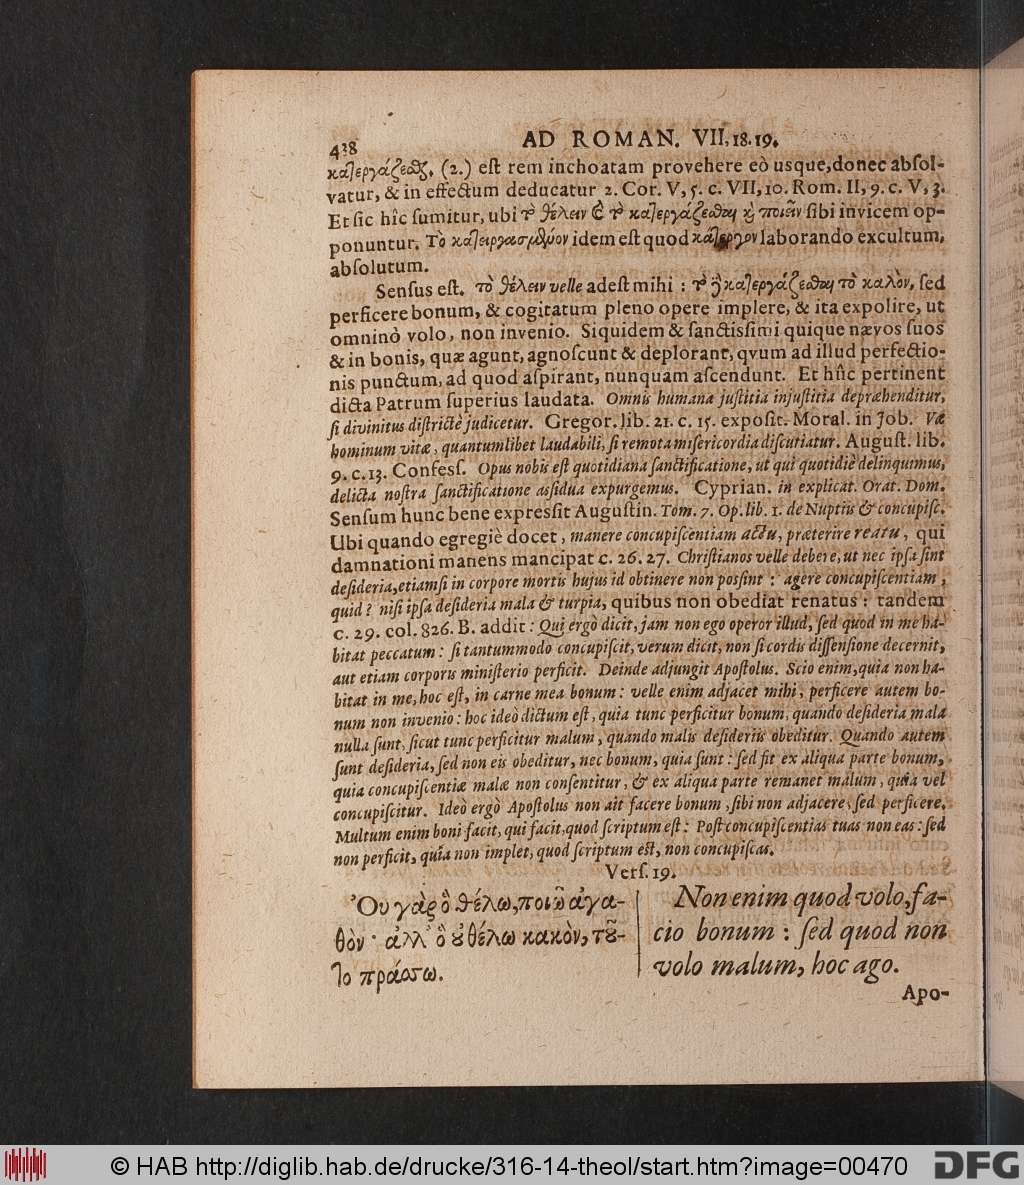 438 AD ROMAN. VII, 18. 19.
κατεργάζεσθζ. (2.) eſt rem inchoatam provehere eò usque, donec abſol-
vatur, & in effectum deducatur 2. Cor. V, 5. c. VII, 10. Rom. II, 9. c. V, 3.
Et ſic hîc ſumitur, ubi τὸ θέλειν & τὸ κατεργάζεσθαι ϗ ποιεῖν ſibi invicem op-
ponuntur. Τὸ κατειργασμένον idem eſt quod κάτεργον laborando excultum,
abſolutum.
Senſus eſt. τὸ θέλειν velle adeſt mihi : τὸ ϳ κατεργάζεσθαι τὸ καλὸν, ſed
perficere bonum, & cogitatum pleno opere implere, & ita expolire, ut
omninò volo, non invenio. Siquidem & ſanctisſimi quique nævos ſuos
& in bonis, quæ agunt, agnoſcunt & deplorant, qvum ad illud perfectio-
nis punctum, ad quod aſpirant, nunquam aſcendunt. Et hûc pertinent
dicta Patrum ſuperius laudata. Omnis humana juſtitia injuſtitia depræhenditur,
ſi divinitus diſtrictè judicetur. Gregor. lib. 21. c. 15. expoſit. Moral. in Job. Væ
hominum vitæ, quantumlibet laudabili, ſi remota miſericordia diſcutiatur. Auguſt. lib.
9. c. 13. Confeſſ. Opus nobis eſt quotidiana ſanctificatione, ut qui quotidiè delinquimus,
delicta noſtra ſanctificatione asſidua expurgemus. Cyprian. in explicat. Orat. Dom.
Senſum hunc bene expresſit Auguſtin. Tom. 7. Op. lib. 1. de Nuptiis & concupiſc.
Ubi quando egregiè docet, manere concupiſcentiam actu, præterire reatu, qui
damnationi manens mancipat c. 26. 27. Chriſtianos velle debere, ut nec ipſa ſint
deſideria, etiamſi in corpore mortis hujus id obtinere non posſint : agere concupiſcentiam,
quid? niſi ipſa deſideria mala & turpia, quibus non obediat renatus: tandem
c. 29. col. 826. B. addit : Qui ergò dicit, jam non ego operor illud, ſed quod in me ha-
bitat peccatum : ſi tantummodo concupiſcit, verum dicit, non ſi cordis diſſenſione decernit,
aut etiam corporis miniſterio perficit. Deinde adjungit Apoſtolus. Scio enim, quia non ha-
bitat in me, hoc eſt, in carne mea bonum : velle enim adjacet mihi, perficere autem bo-
num non invenio : hoc ideò dictum eſt, quia tunc perficitur bonum, quando deſideria mala
nulla ſunt, ſicut tunc perficitur malum, quando malis deſideriis obeditur. Quando autem
ſunt deſideria, ſed non eis obeditur, nec bonum, quia ſunt : ſed fit ex aliqua parte bonum,
quia concupiſcentiæ malæ non conſentitur, & ex aliqua parte remanet malum, quia vel
concupiſcitur. Ideò ergò Apoſtolus non ait facere bonum, ſibi non adjacere, ſed perficere.
Multum enim boni facit, qui facit, quod ſcriptum eſt : Poſt concupiſcentias tuas non eas : ſed
non perficit, quia non implet, quod ſcriptum eſt, non concupiſcas.
Verſ. 19.
Ὀυ γὰρ ὃ θέλω, ποιῶ ἀγα-
θὸν · ἀλλ' ὃ ȣ θέλω κακὸν, τȣ͂-
το πράσσω.
Non enim quod volo, fa-
cio bonum : ſed quod non
volo malum, hoc ago.
Apo-
© HAB http://diglib.hab.de/drucke/316-14-theol/start.htm?image=00470 DFG